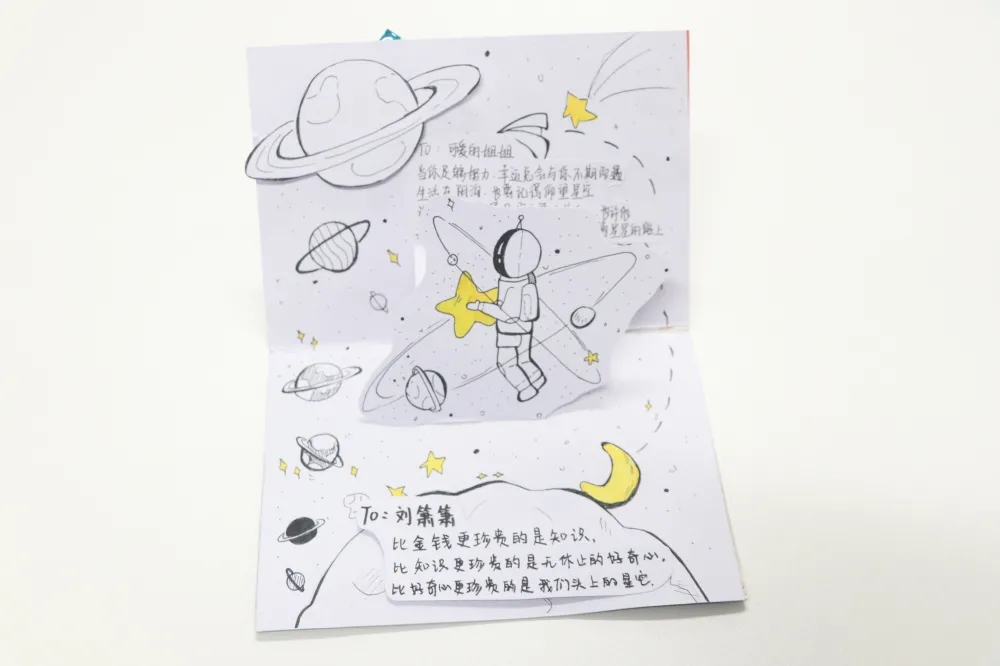 To: 可爱的姐姐
当你足够努力，幸运便会与你不期而遇
生活在阴沟，也要记得仰望星空
有星星的路上
To: 刘箫箫
比金钱更珍贵的是知识，
比知识更珍贵的是无休止的好奇心，
比好奇心更珍贵的是我们头上的星空.